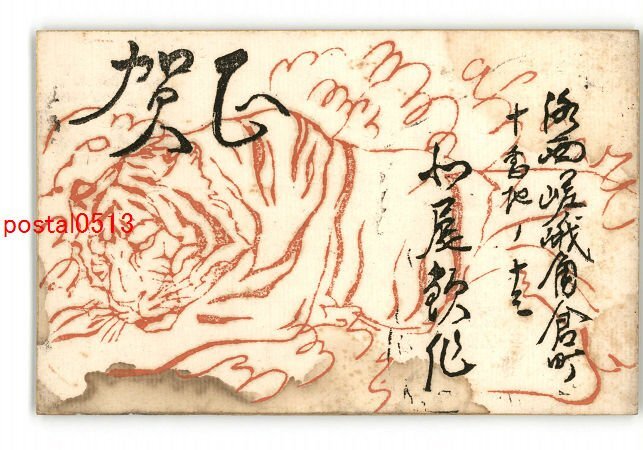 賀正
洛西嵯峨角倉町
十番地ノ十三
尾頼作
postal0513